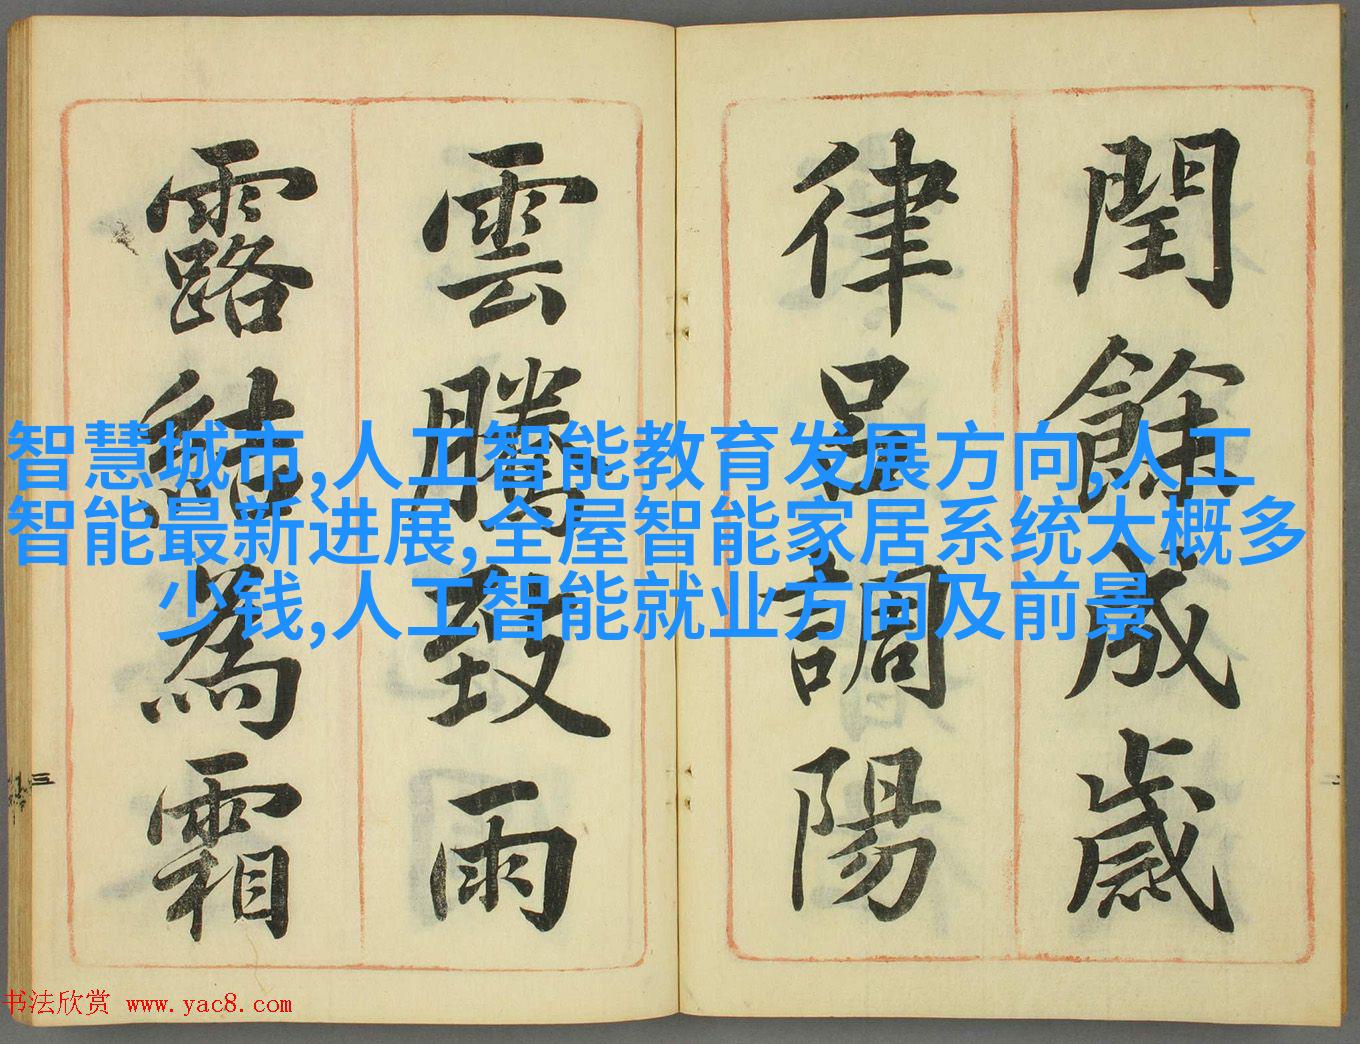 閏餘成歲
律呂調陽
雲騰致雨
露結為霜
智慧城市,人工智能教育发展方向,人工
智能最新进展,全屋智能家居系统大概多
少钱,人工智能就业方向及前景
三
二
书法欣赏 www.yac8.com